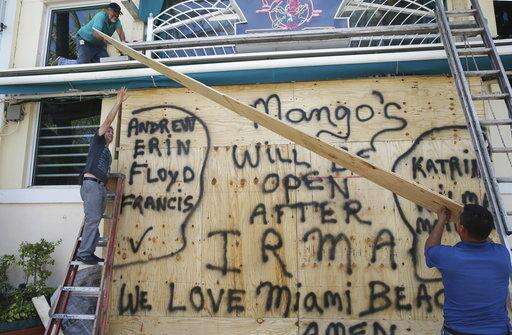 Mango's
ANDREW
ERIN
FLOYD
FRANCIS
WILL
OPEN
AFTER
IRMA
KATRI
WE LOVE MIAMI BEAC
AMEN